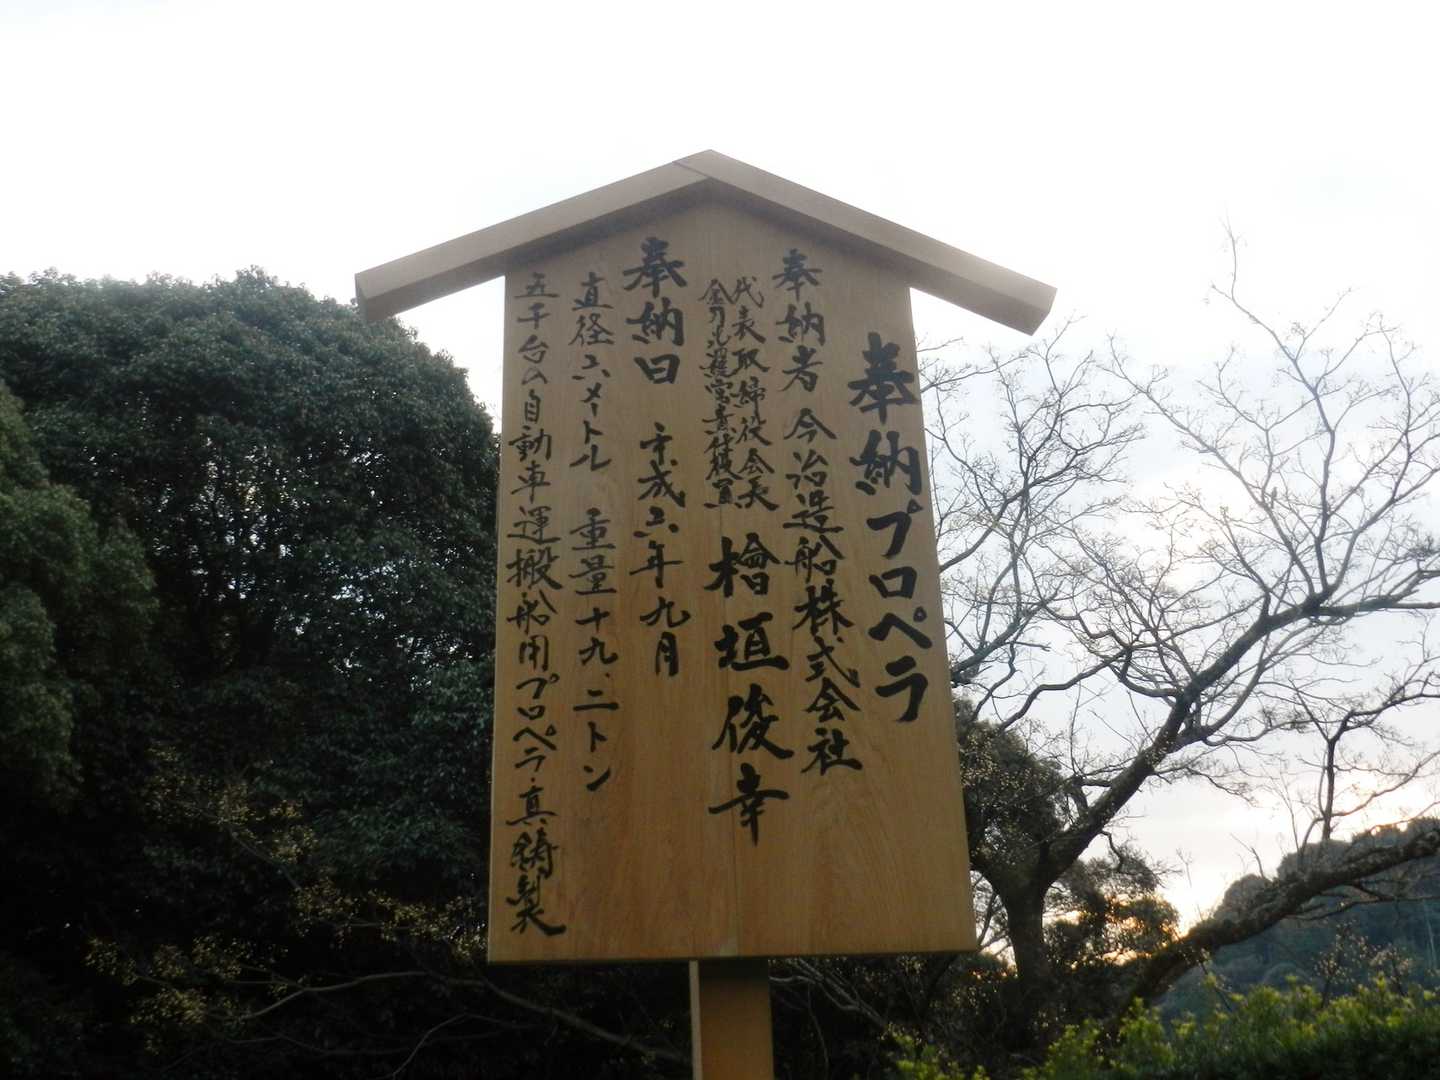 奉納プロペラ
奉納者 今治造船株式会社
代表取締役会長
金刀比羅宮責任役員
檜垣俊幸
奉納日 平成六年九月
直径六メートル 重量十九、二トン
五千台の自動車運搬船用プロペラ・真鋳製